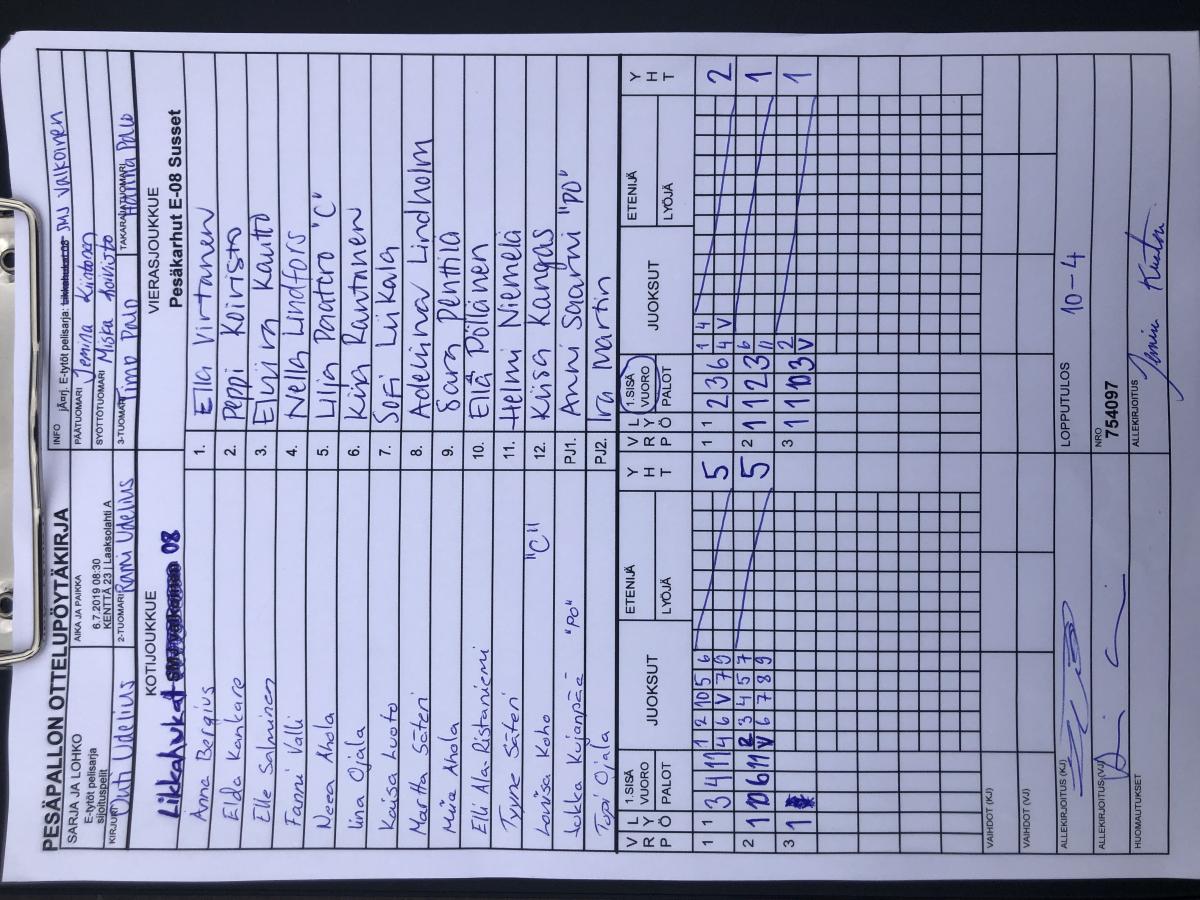 PESÄPALLON OTTELUPÖYTÄKIRJA
SARJA JA LOHKO
E-tytöt pelisarja
sijoituspelit
AIKA JA PAIKKA
6.7.2019 08:30
KENTTÄ 23 | Laaksolahti A
INFO
jÄrrj. E-tytöt pelisarja: Likkahukat 08 SMJ Valkoinen
PÄÄTUOMARI Jemina Kiintonen
SYÖTTÖTUOMARI Miska Koivisto
KIRJURI Outi Udelius
2-TUOMARI Rami Udelius
3-TUOMARI Timo Palo
TAKARAJATUOMARI Hanna Palo
KOTIJOUKKUE
Likkahukat 08
VIERASJOUKKUE
Pesäkarhut E-08 Susset
Anna Bergius 1. Ella Virtanen
Elda Kankare 2. Peppi Koivisto
Elle Salminen 3. Elviira Kautto
Fanni Valli 4. Nella Lindfors
Neea Ahola 5. Lilja Paatero "C"
Iina Ojala 6. Kiija Rantanen
Kaisa Luoto 7. Sofi Liikala
Martta Säteri 8. Adeliina Lindholm
Miia Ahola 9. Sara Penttilä
Elli Alla-Ristaniemi 10. Ella Pölläinen
Tyyne Säteri 11. Helmi Niemelä
Louisa Koho "C" 12. Kiisa Kangas
Jukka Kujanpää "PO" PJ1. Anni Saarni "PO"
Topi Ojala PJ2. Ira Martin
V R P
L Y Ö
1.SISÄ VUORO
PALOT
JUOKSUT
ETENIJÄ
LYÖJÄ
Y H T
V R P
L Y Ö
1.SISÄ VUORO
PALOT
JUOKSUT
ETENIJÄ
LYÖJÄ
Y H T
1 1 3 4 11 1 2 10 5 6 5 1 1 2 3 6 1 4 2
4 6 V 7 9 4 V
2 1 10 6 11 2 3 4 5 7 5 2 1 1 2 3 6 1
V 6 7 8 9 11
3 1 3 1 1 10 3 2 1
V
VAIHDOT (KJ)
VAIHDOT (VJ)
ALLEKIRJOITUS (KJ)
LOPPUTULOS 10-4
ALLEKIRJOITUS (VJ)
NRO
754097
HUOMAUTUKSET
ALLEKIRJOITUS